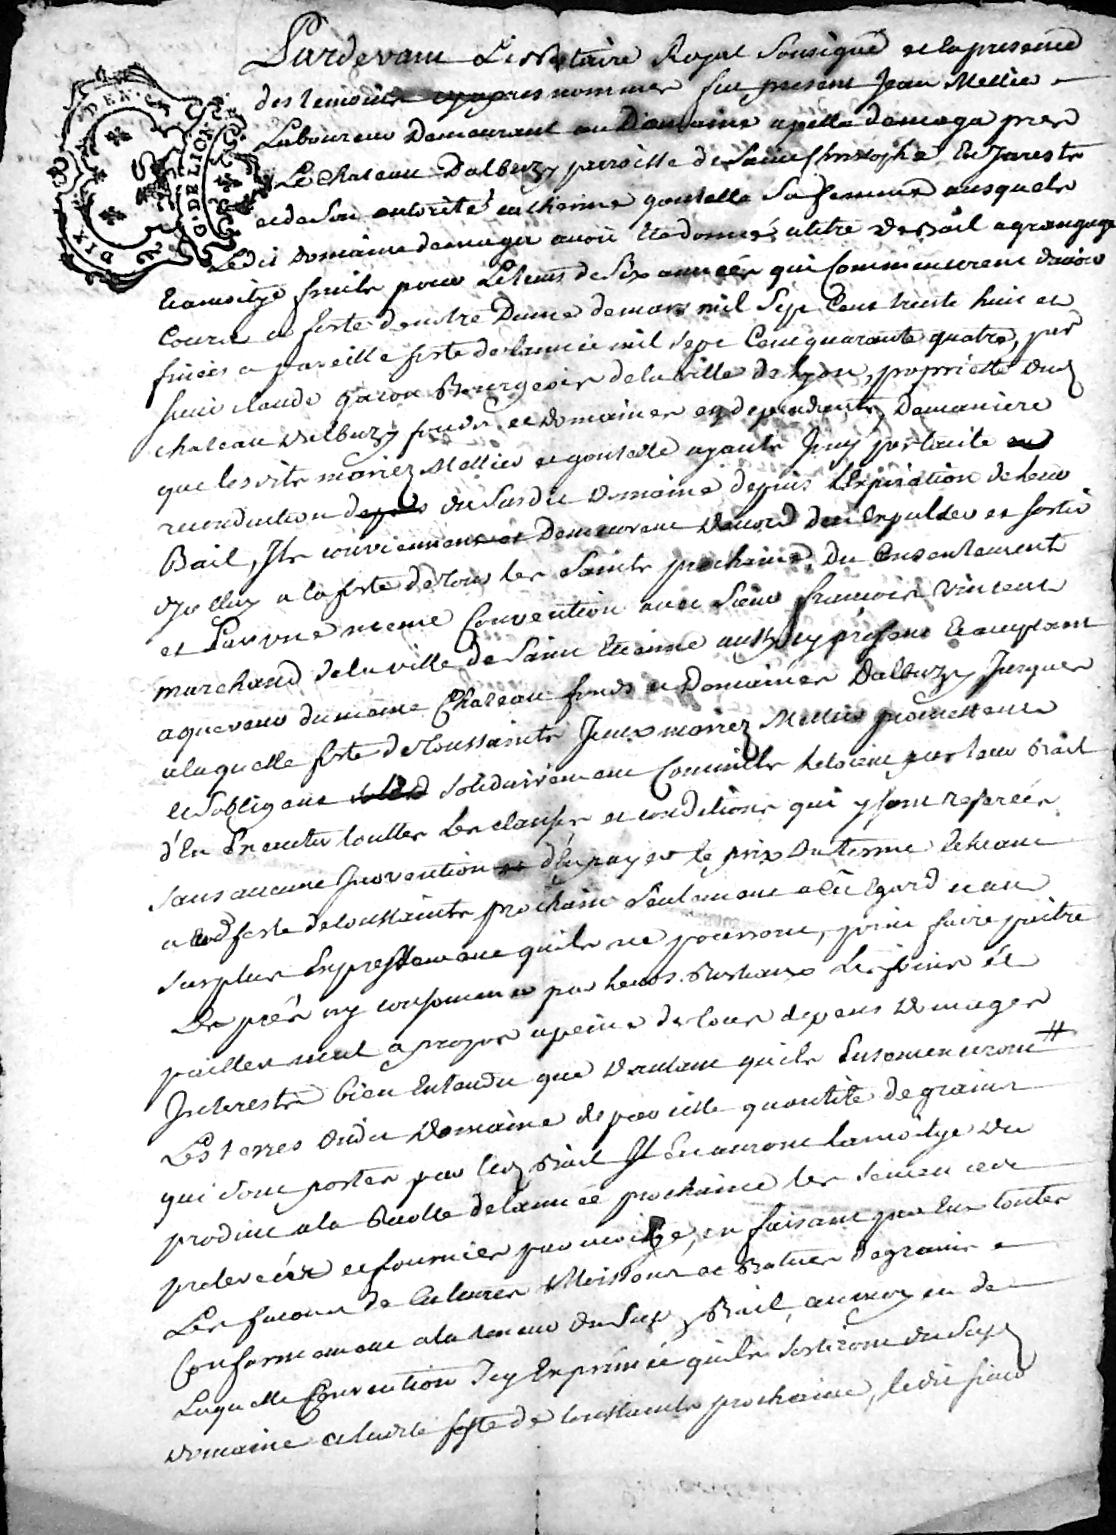 Pardevant Le Notaire Royal Soussigné et la presence
des temoins cyapres nommés fut present Jean Mellier
Laboureur Demeurant au Domaine apellé demaga pres
Le Chateau Dalbuzy parroisse de Saint Christophe En Jarests
et de Son autorité catherine gontelle Sa femme ausquels
Le dit Domaine demaga avoit Eté donné atitre debail agrangage
Eamoitye fruits pour Letems de Six années qui Commencerent davoir
Cours a feste de notre Dame demars mil Sept Cent trente huit et
finies a pareille feste delannée mil Sept Cent quarante quatre, par
Sieur claude garon Bourgeois dela ville de Lyon, proprietté dud
chateau Dalbuzy fonds et domaines en dependants, Demaniere
que lesdits mariez Mellier et gontelle ayants Jouy partacite
reconduction du Susdit Domaine depuis Lexpiration de leur
Bail, Ils conviennent et Demeurent Dacord den Expulser et sortir
dycelluy a la feste de tous les Saints prochaine, Du Consentement
et Par une meme Convention avec Sieur francois Vincent
marchand dela ville de Saint Etienne aussy cy présent Eacceptant
aquereur dumeme Chateau fonds et Domaines Dalbuzy Jusques
alaquelle feste de toussaints Iceux mariez Mellier promettent
et Sobligent Solidairement Comme ils Letoient par leur Bail
d'En Executer touttes Les clauses et conditions qui y sont referées
Sans aucune Inovention d'En payer le prix Du terme Echeant
a lad feste detoussaints prochain Seulement a cet Egard et au
surplus Expressement quils ne pourront, point faire paitre
Les prés ny consommer par leurs Bestiaux Les foins et
pailles mal aproposs apeine de tous depens Domages
Interests bien Entendu que Dautant quils Ensemenceront #
Les terres dudit Domaine de pareille quantité de grains
qui Sont portés par led Bail Il En auront lamoitye du
produit ala Recolte delannée prochaine les Semences
prelevées et fournies par moitye, en faisant par Eux toutes
Les facons de Cultures Moissons et Batues degrains
Conformement alateneur du Susd Bail, au moyen de
Laquelle Convention Icy Exprimée quils Sortiront du Susd
Domaine aladite feste de toussaints prochaine, ledit sieur
DEN.C
G.D.DE LION
DIX